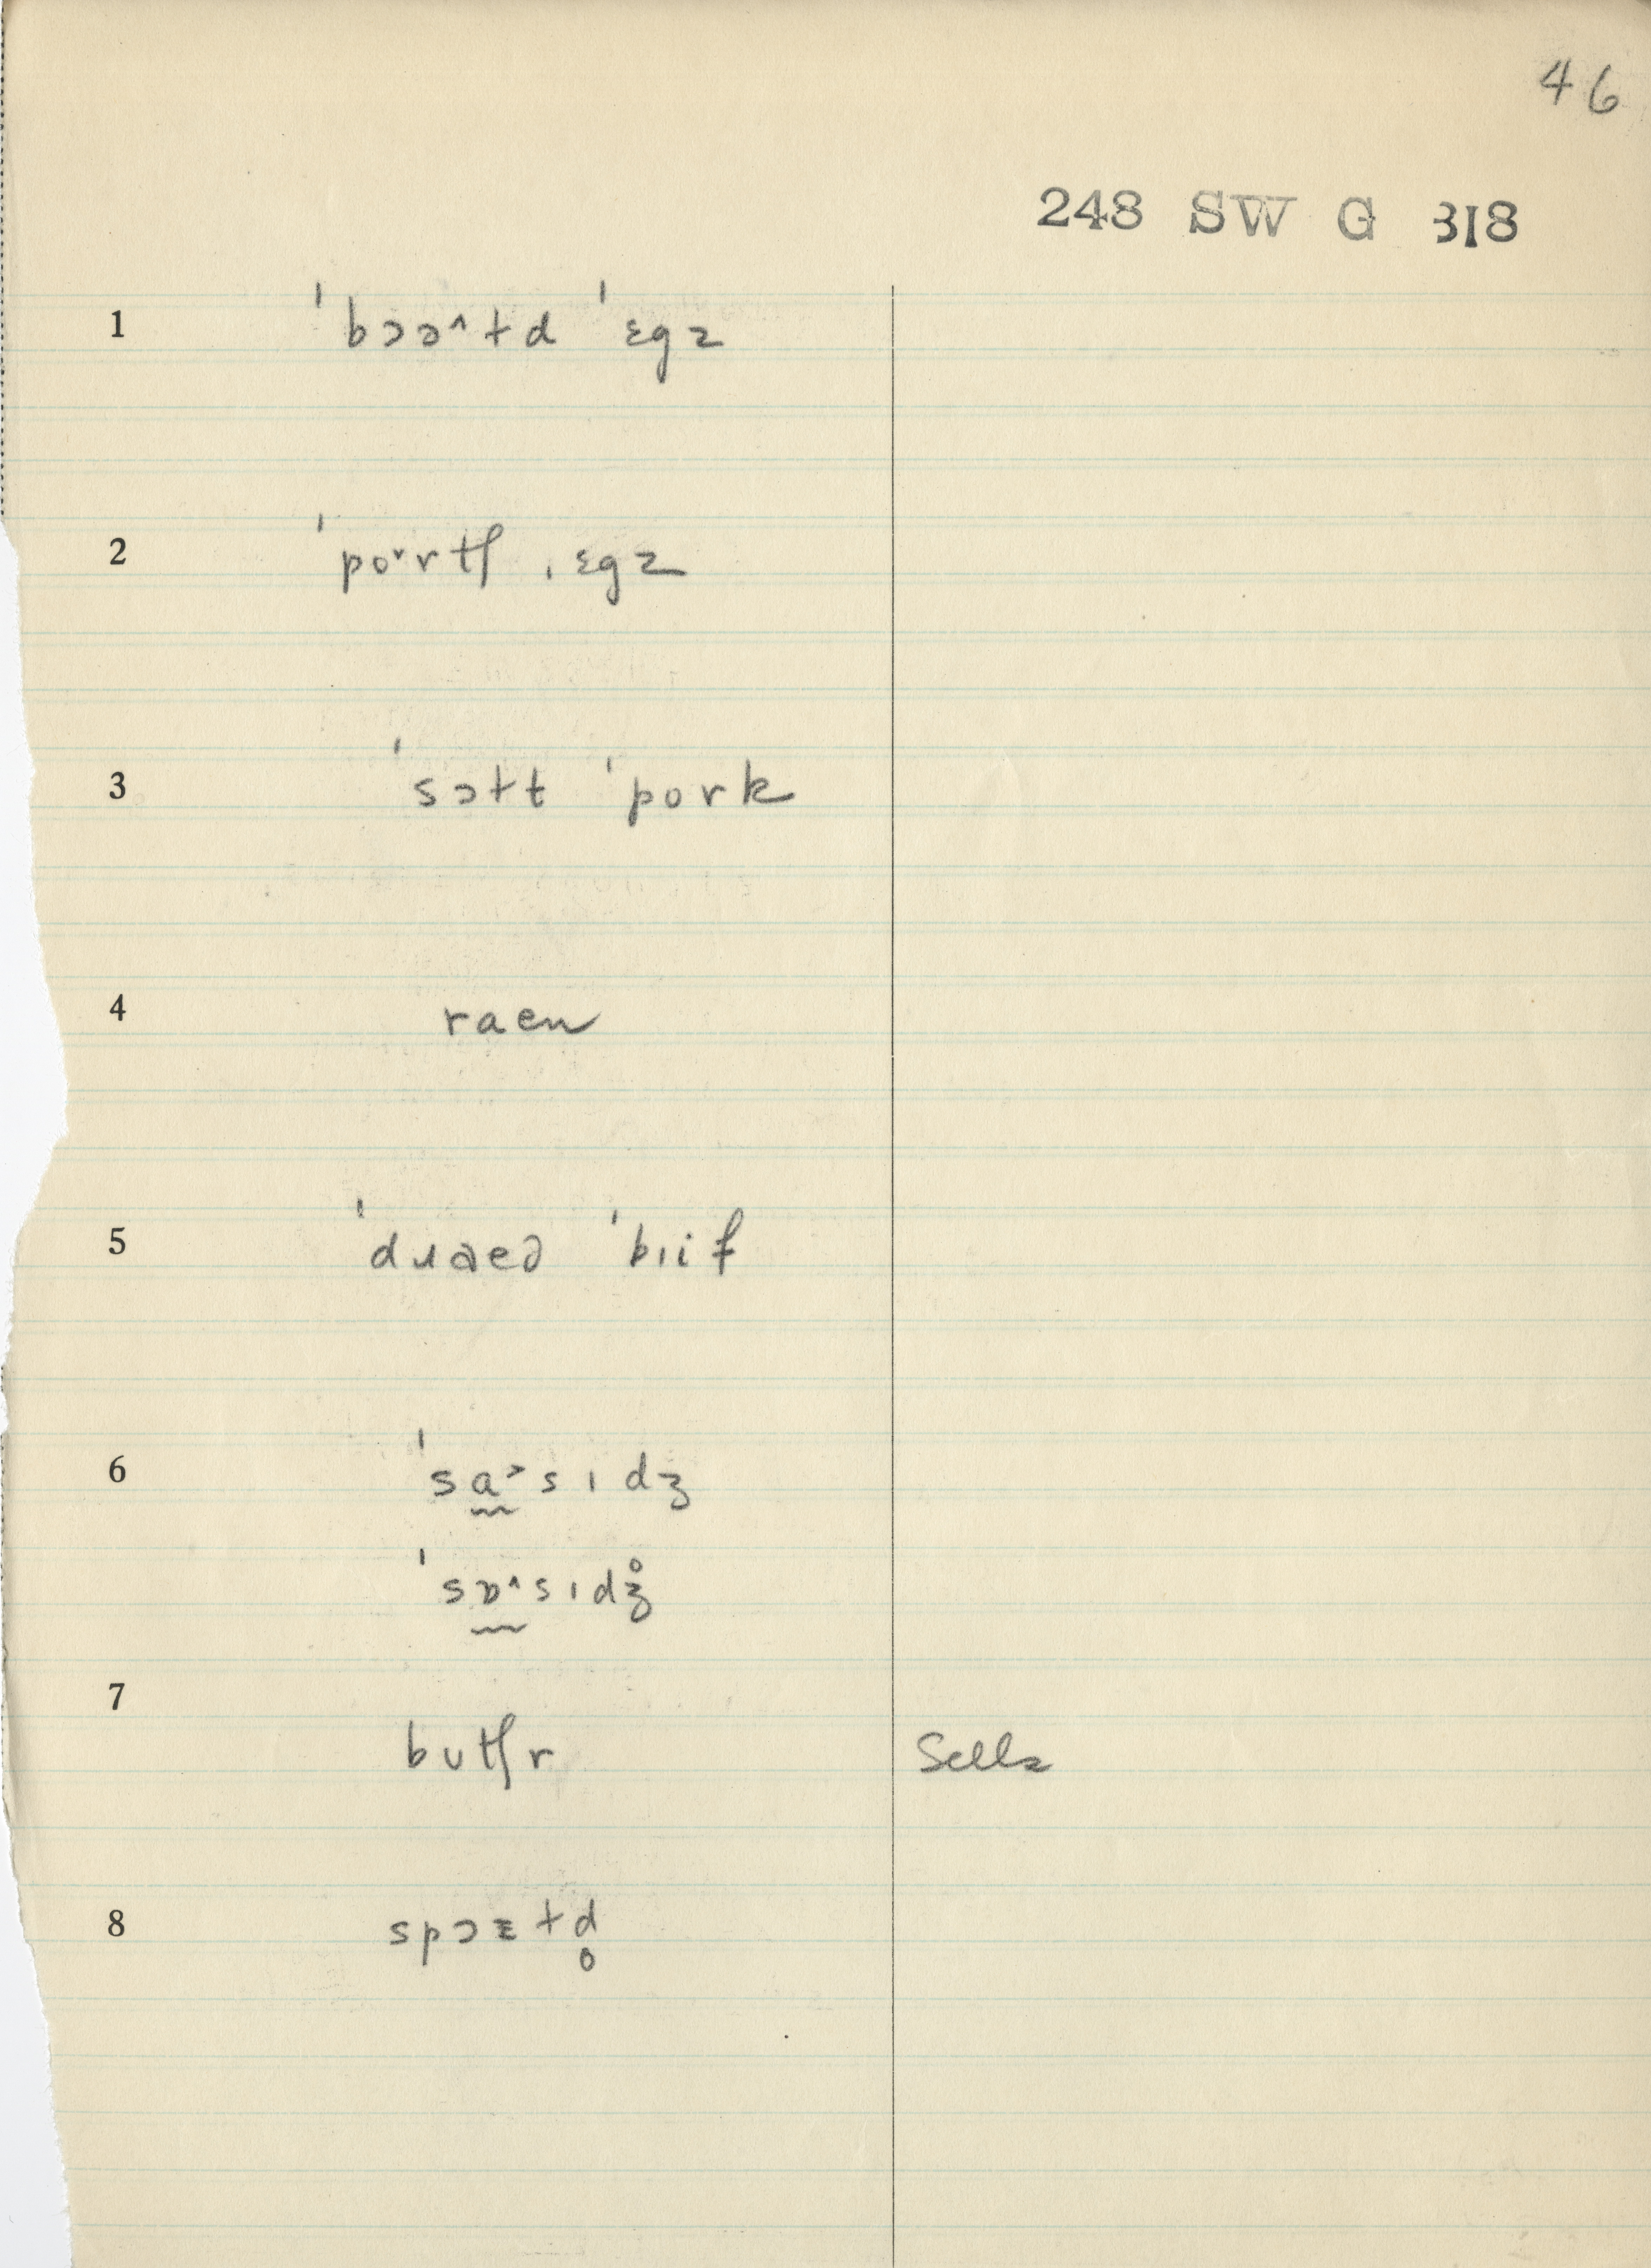 46
248 SW G 318
1 ˈbɔə˄ɫd ˈɛgz
2 ˈpo˅rtʃ ˌɛgz
3 ˈsɔɫt ˈpork
4 raen
5 ˈdɹaed ˈbɪif
6 ˈsɑ˃sɪdʒ
ˈsɒ˄sɪdʒ̊
7 butʃr Sells
8 spɔɪɫd̥